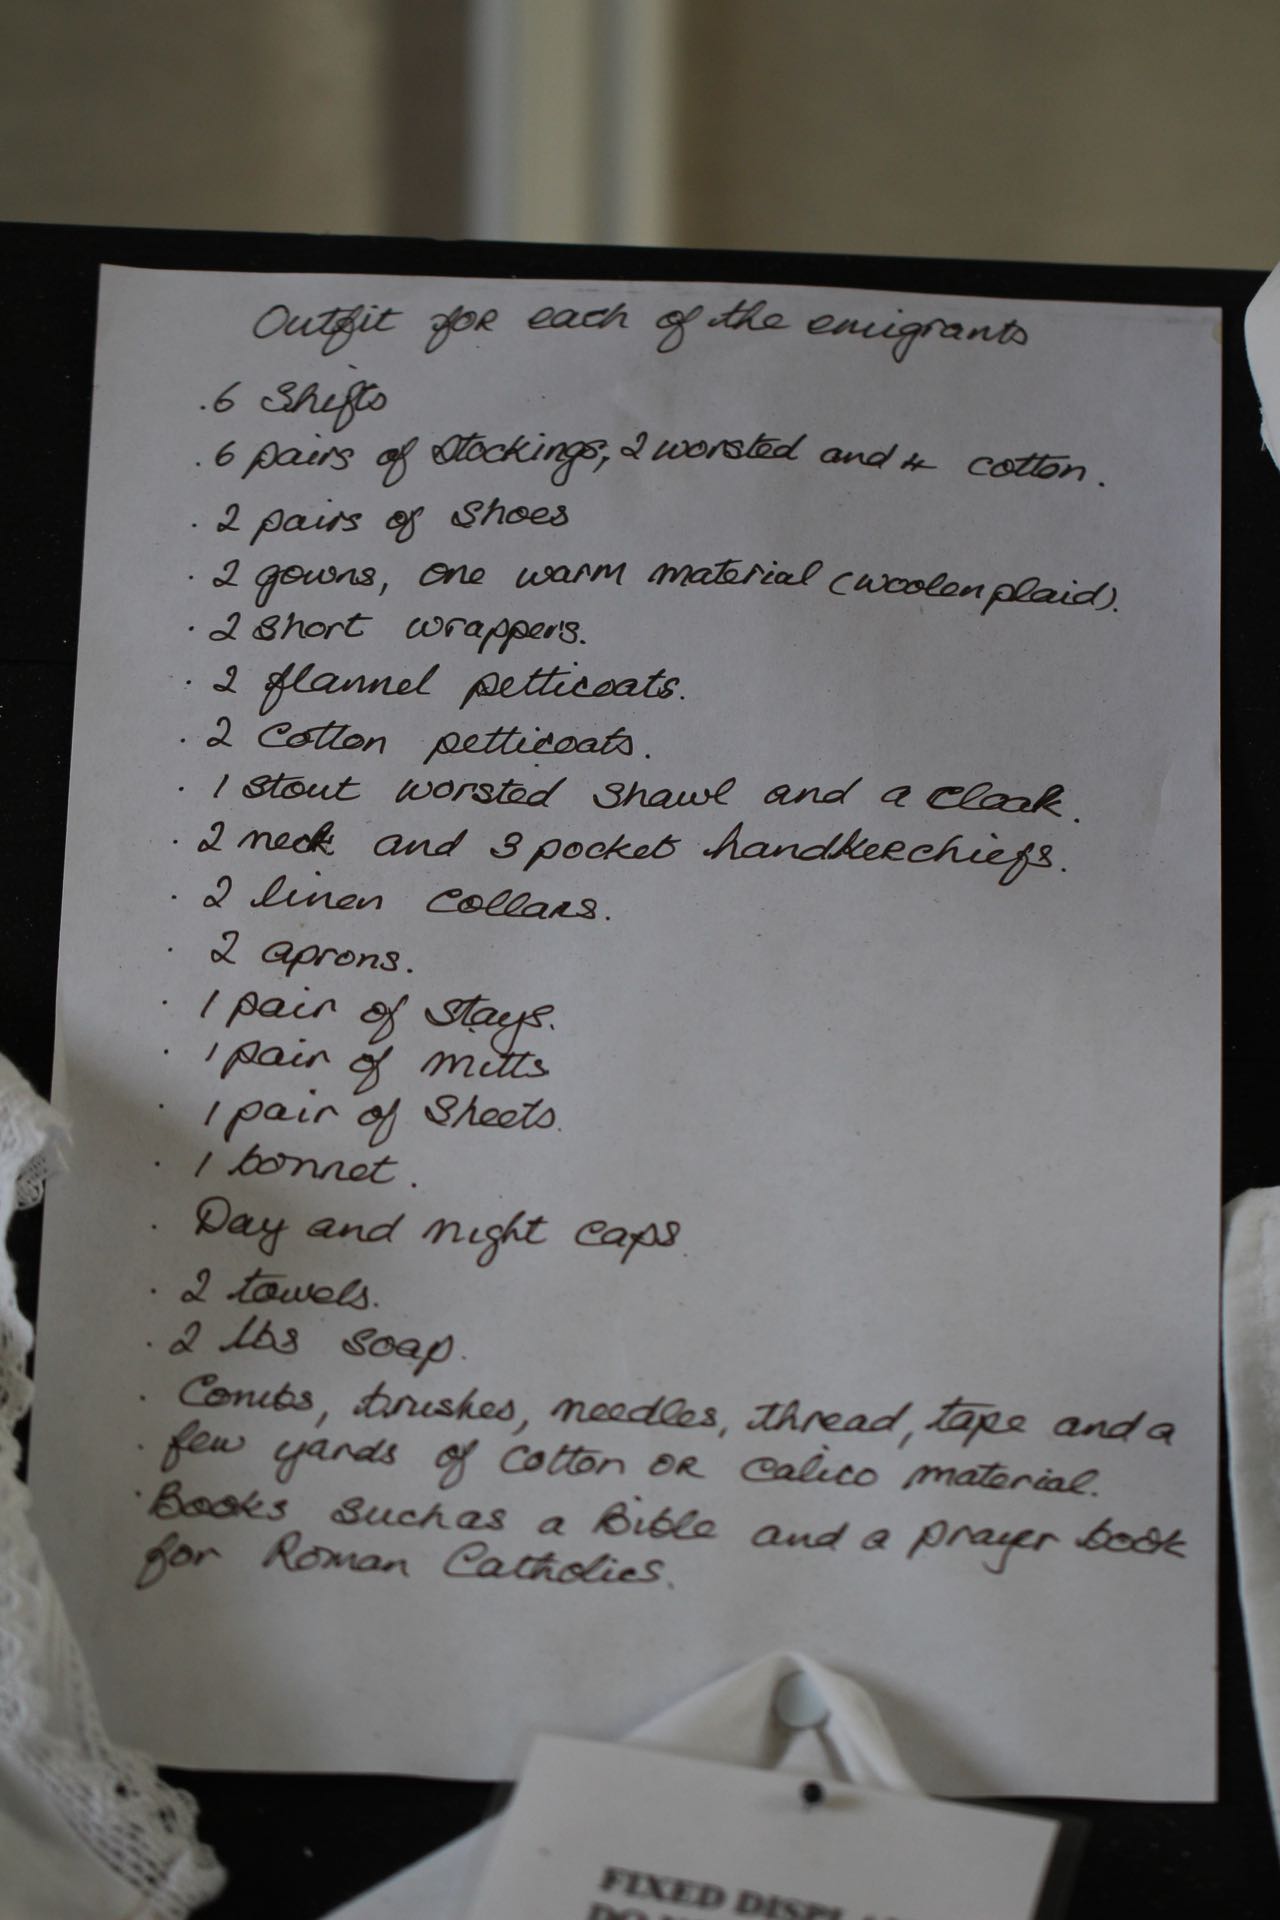 Outfit for each of the emigrants
. 6 Shifts
. 6 pairs of stockings, 2 worsted and 4 cotton.
. 2 pairs of shoes
. 2 gowns, one warm material (woolen plaid).
. 2 short wrappers.
. 2 flannel petticoats.
. 2 cotton petticoats.
. 1 stout worsted shawl and a cloak.
. 2 neck and 3 pocket handkerchiefs.
. 2 linen collars.
. 2 aprons.
. 1 pair of stays.
. 1 pair of mitts
. 1 pair of sheets.
. 1 bonnet.
. Day and night caps
. 2 towels.
. 2 lbs soap.
. Combs, brushes, needles, thread, tape and a
. few yards of cotton or calico material.
. Books such as a Bible and a prayer book
for Roman Catholics.
FIXED
DO